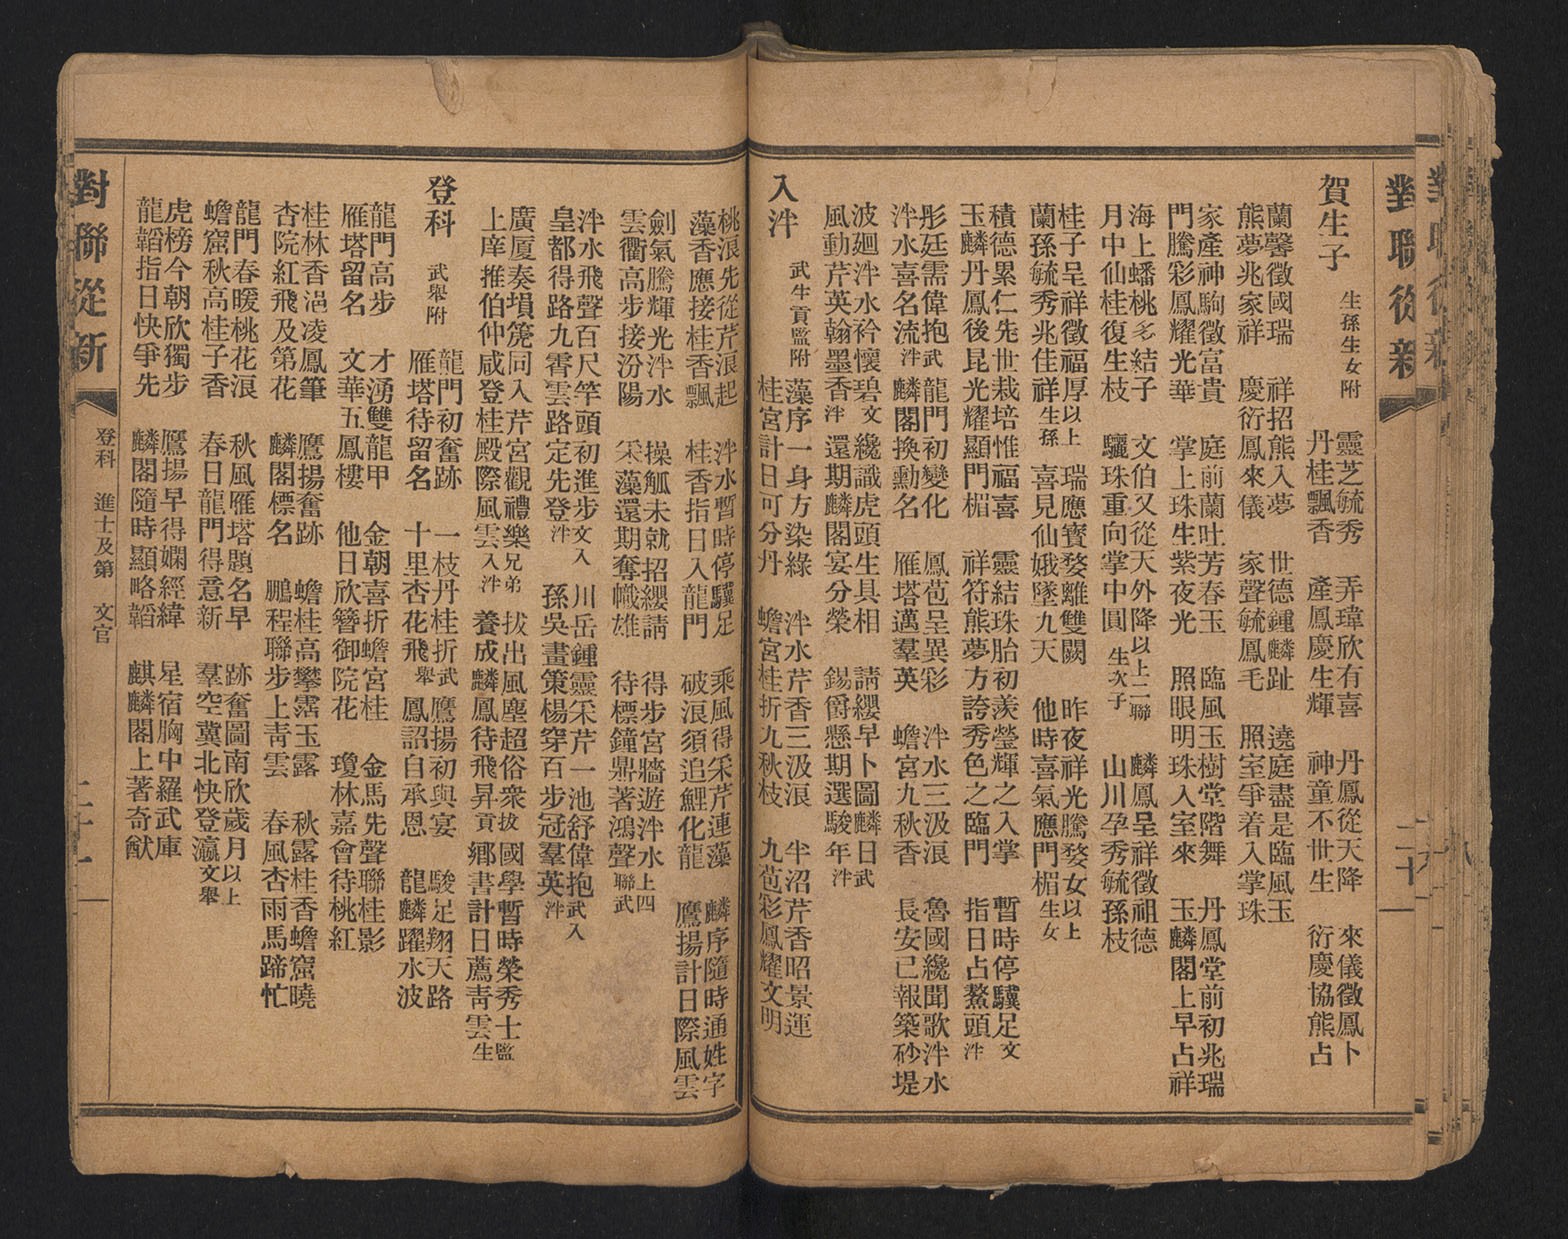 對聯從新
對聯從新 二十
賀生子 生孫生女附
靈芝毓秀 弄璋欣有喜 丹鳳從天降 來儀徵鳳卜
丹桂飄香 產鳳慶生輝 神童不世生 衍慶協熊占
蘭馨徵國瑞 祥招熊入夢 世德鍾麟趾 遶庭盡是臨風玉
熊夢兆家祥 慶衍鳳來儀 家聲毓鳳毛 照室爭着入掌珠
家產神駒徵富貴 庭前蘭吐芳春玉 臨風玉樹堂階舞 丹鳳堂前初兆瑞
門騰彩鳳耀光華 掌上珠生紫夜光 照眼明珠入室來 玉麟閣上早占祥
海上蟠桃多結子 文伯又從天外降 以上二聯 麟鳳呈祥徵祖德
月中仙桂復生枝 驪珠重向掌中圓 生次子 山川孕秀毓孫枝
桂子呈祥徵福厚 以上 瑞應寶婺離雙闕 昨夜祥光騰婺女 以上
蘭孫毓秀兆佳祥 生孫 喜見仙娥墜九天 他時喜氣應門楣 生女
積德累仁先世栽培惟福喜 靈結珠胎初羨瑩輝之入掌 暫時停驥足 文
玉麟丹鳳後昆光耀顯門楣 祥符熊夢方誇秀色之臨門 指日占鰲頭 泮
彤廷需偉抱 武 龍門初變化 鳳苞呈異彩 泮水三汲浪 魯國纔聞歌泮水
泮水喜名流 泮 麟閣換勳名 雁塔邁羣英 蟾宮九秋香 長安已報築砂堤
波廻泮水衿懷碧 文 纔識虎頭生具相 請纓早卜圖麟日 武
風動芹英翰墨香 泮 還期麟閣宴分榮 錫爵懸期選駿年 泮
入泮 武生貢監附
藻序一身方染綠 泮水芹香三汲浪 半沼芹香昭景運
桂宮計日可分丹 蟾宮桂折九秋枝 九苞彩鳳耀文明
桃浪先從芹浪起 泮水暫時停驥足 乘風得采芹連藻 麟序隨時通姓字
藻香應接桂香飄 桂香指日入龍門 破浪須追鯉化龍 鷹揚計日際風雲
劍氣騰輝光泮水 操觚未就招纓請 得步宮牆遊泮水 上四
雲衢高步接汾陽 采藻還期奪幟雄 待標鐘鼎著鴻聲 聯武
泮水飛聲百尺竿頭初進步 文入 川岳鍾靈采芹一池舒偉抱 武入
皇都得路九霄雲路定先登 泮 孫吳畫策楊穿百步冠羣英 泮
廣厦奏塤箎同入芹宮觀禮樂 兄弟 拔出風塵超俗衆 拔 國學暫時榮秀士 監
上庠推伯仲咸登桂殿際風雲 入泮 養成麟鳳待飛昇 貢 鄉書計日薦靑雲 生
登科 武舉附
龍門初奮跡 一枝丹桂折 武 鷹揚初與宴 駿足翔天路
雁塔待留名 十里杏花飛 舉 鳳詔自承恩 龍麟躍水波
龍門高步 才湧雙龍甲 金朝喜折蟾宮桂 金馬先聲聯桂影
雁塔留名 文華五鳳樓 他日欣簪御院花 瓊林嘉會待桃紅
桂林香浥凌鳳筆 鷹揚奮跡 蟾桂高攀霑玉露 秋露桂香蟾窟曉
杏院紅飛及第花 麟閣標名 鵬程聯步上靑雲 春風杏雨馬蹄忙
龍門春暖桃花浪 秋風雁塔題名早 跡奮圖南欣歲月 以上
蟾窟秋高桂子香 春日龍門得意新 羣空冀北快登瀛 文舉
虎榜今朝欣獨步 鷹揚早得嫻經緯 星宿胸中羅武庫
龍韜指日快爭先 麟閣隨時顯略韜 麒麟閣上著奇猷
對聯從新 登科 進士及第 文官 二十一